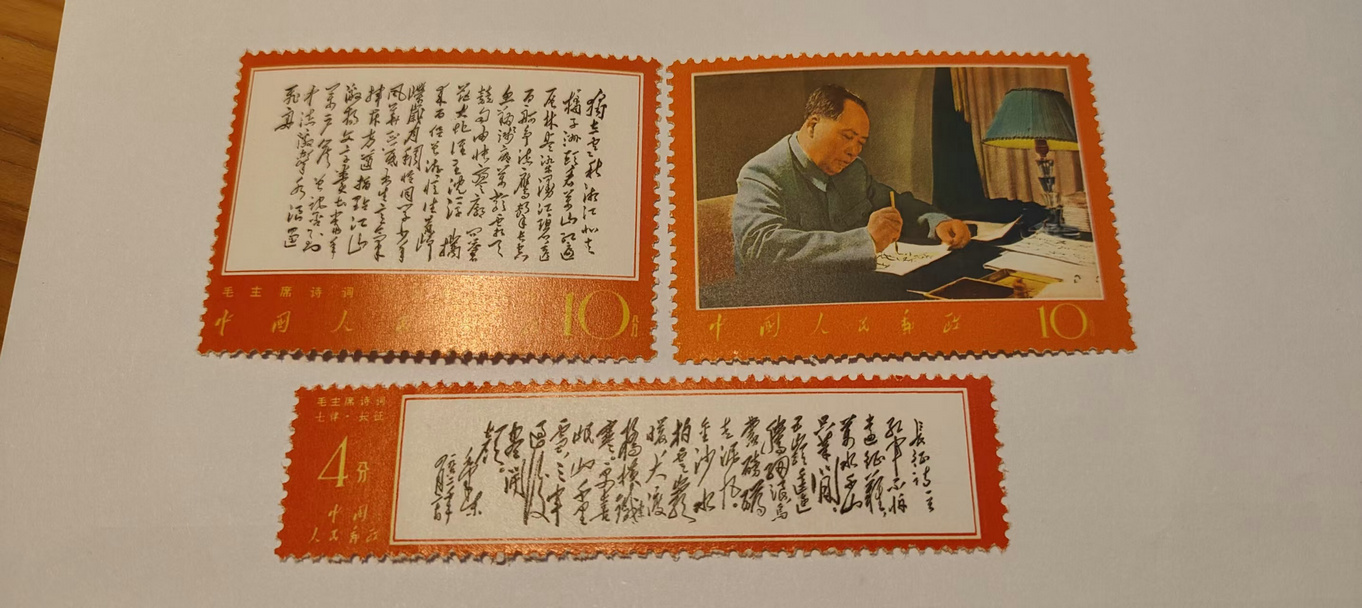 独立寒秋湘江北去
橘子洲头看万山红遍
层林尽染漫江碧透
百舸争流鹰击长空
鱼翔浅底万类霜天
竞自由怅寥廓问苍
茫大地谁主沉浮携
来百侣曾游忆往昔峥
嵘岁月稠恰同学少年
风华正茂书生意气
挥斥方遒指点江山
激扬文字粪土当年
万户侯曾记否到
中流击水浪遏
飞舟
毛主席诗词
中国人民邮政
10分
中国人民邮政
10
毛主席诗词
七律·长征
4分
中国
人民邮政
長征詩一首
红軍不怕
遠征難
萬水千山
只等闲
五嶺逶迤
騰細浪烏
蒙磅礴
走泥丸
金沙水
拍雲
暖大渡
橋横鐵索
寒更喜
岷山千里
雪三軍
過後
盡開
顔
毛泽东